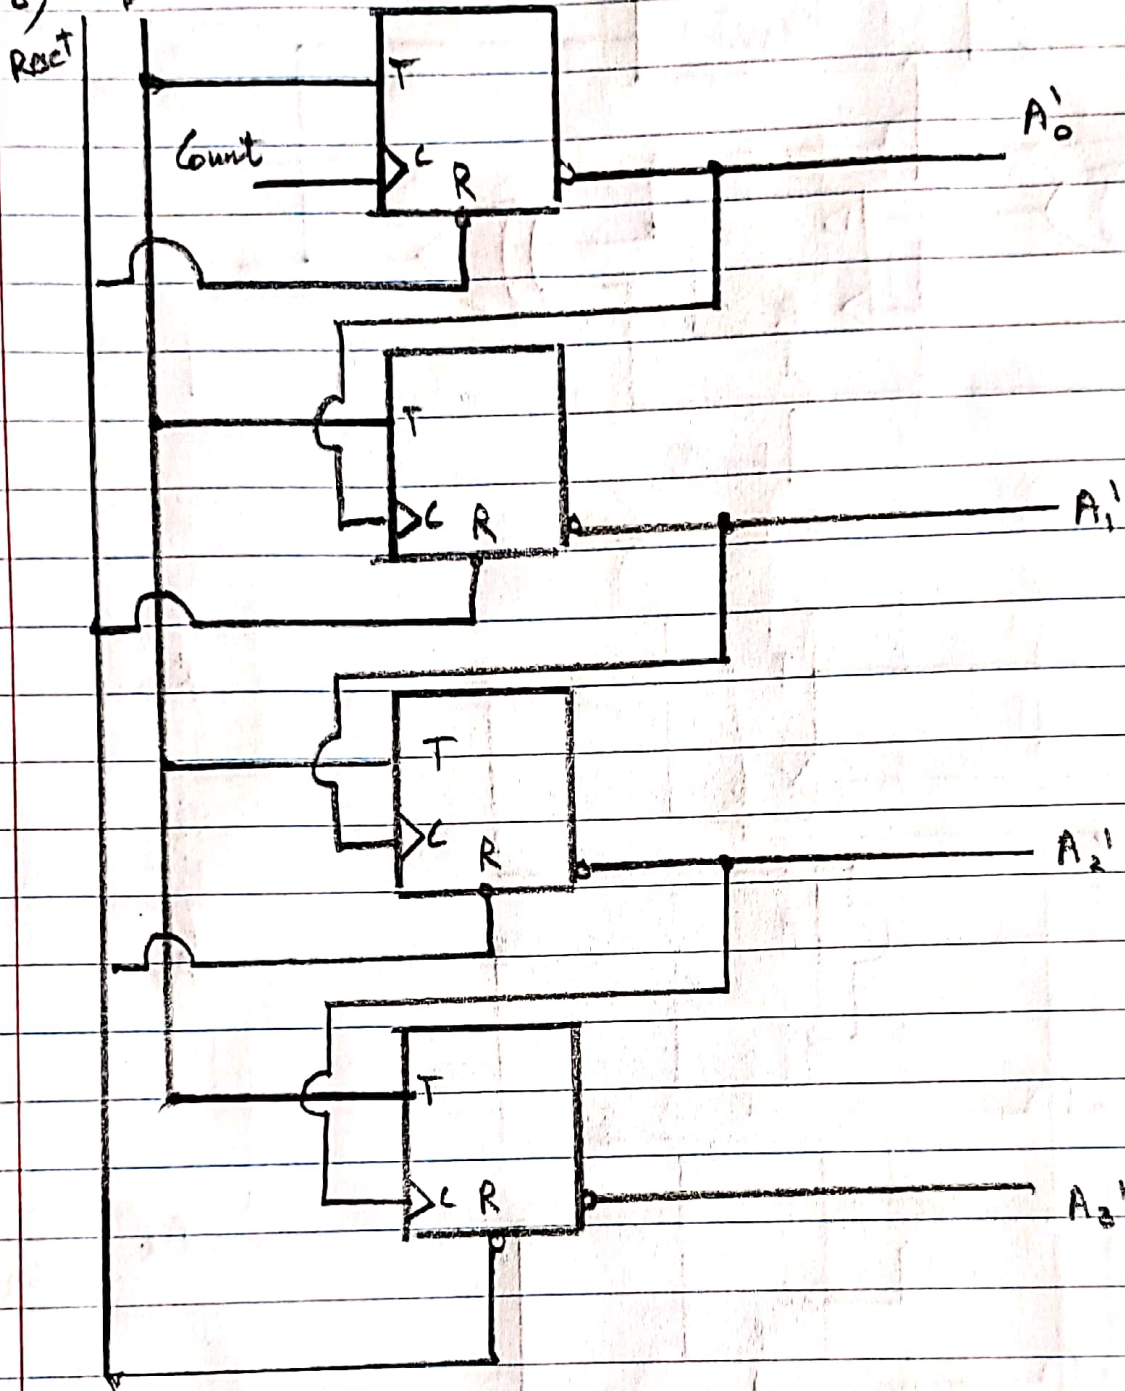 Reset
T
Count
C
R
A'0
T
C
R
A1'
T
C
R
A2'
T
C
R
A3'